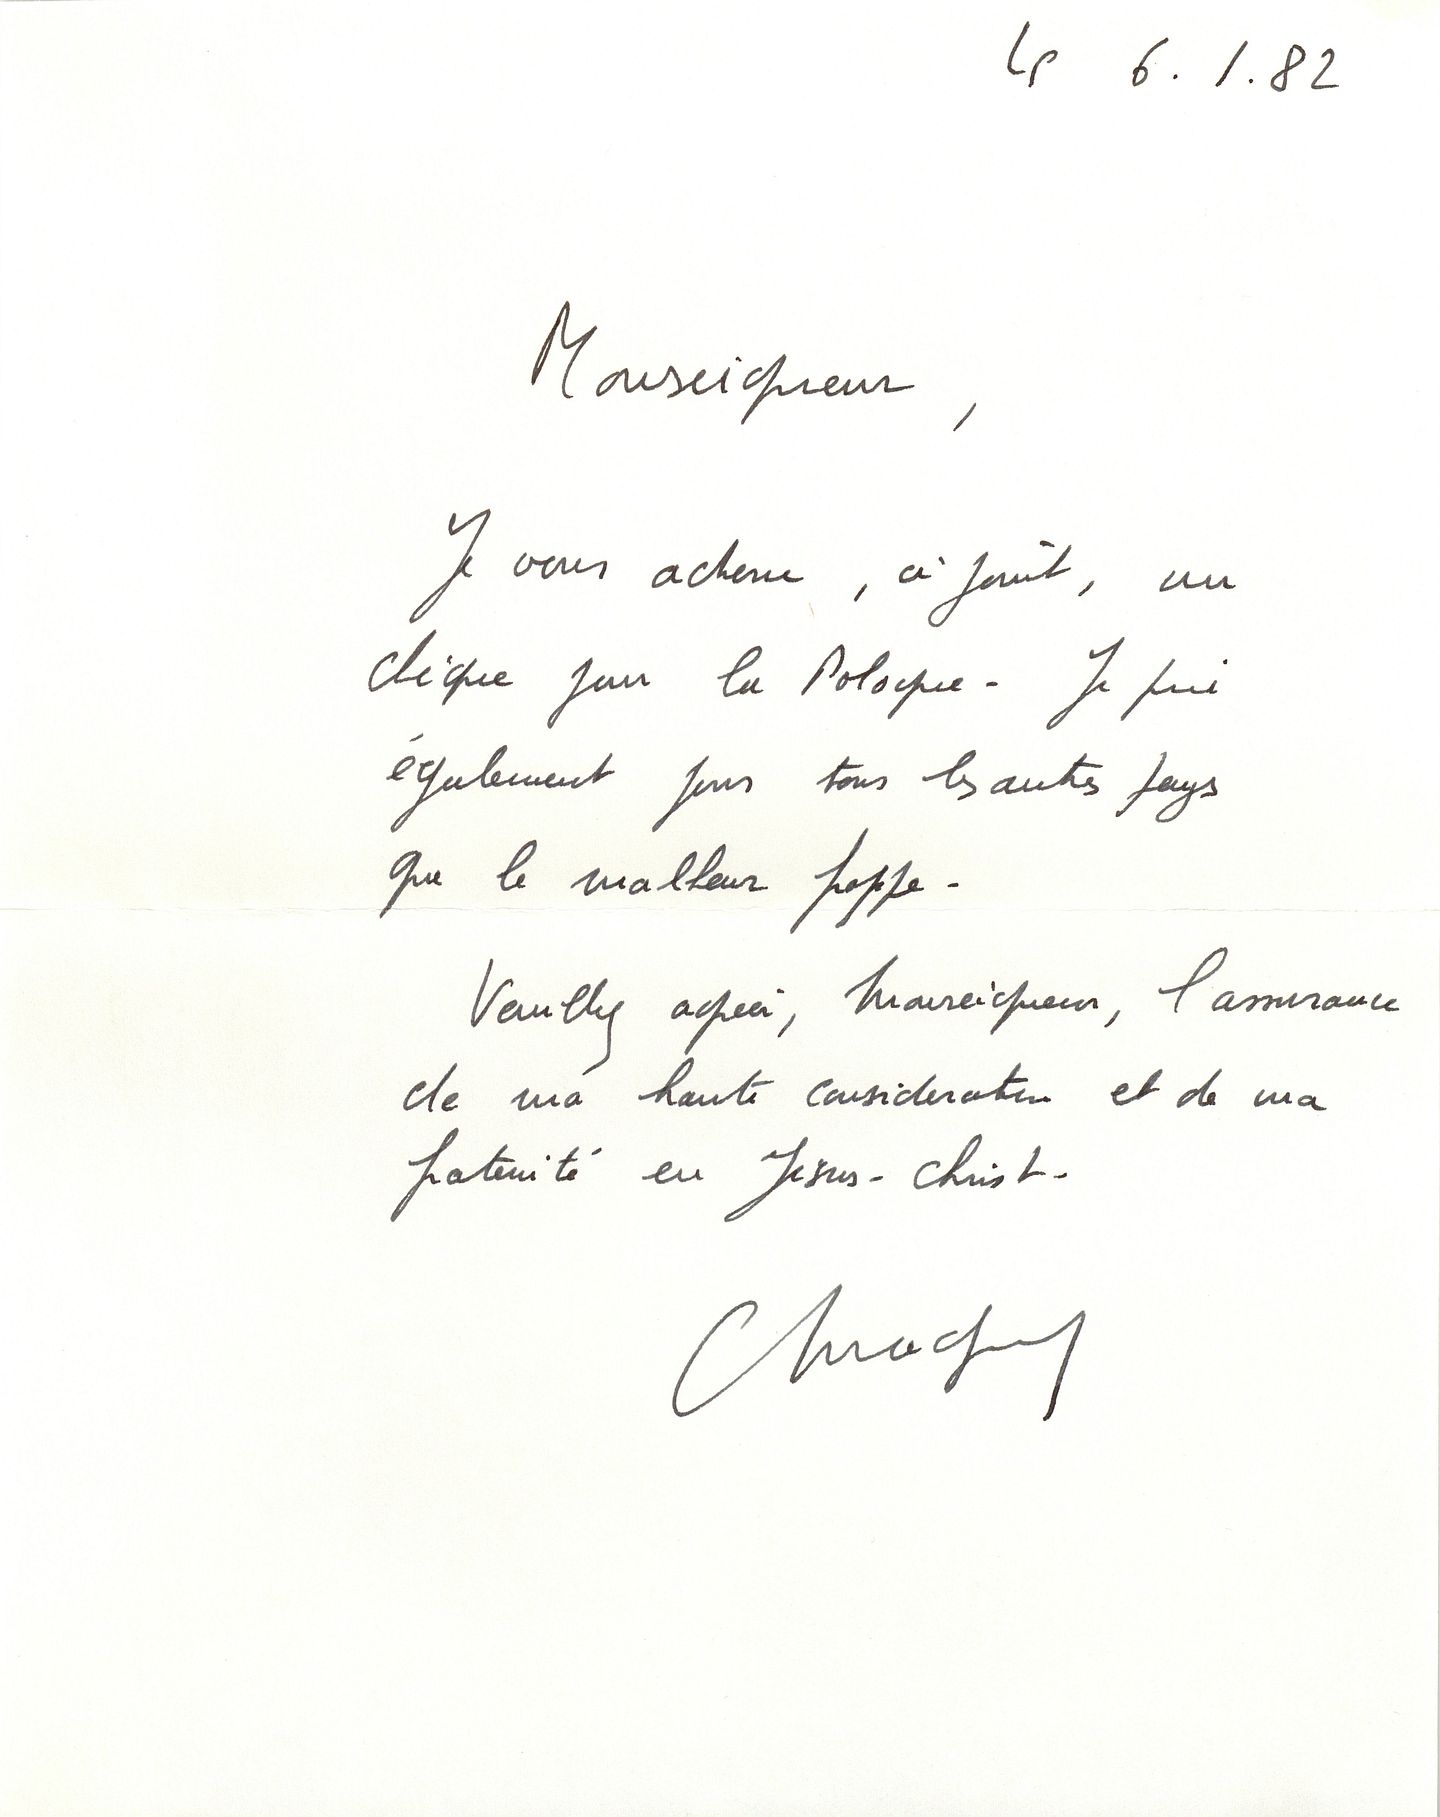 Le 6.1.82
Monseigneur,
Je vous adresse, ci joint, un
chèque pour la Pologne. Je prie
également pour tous les autres pays
que le malheur frappe.
Veuillez agréer, Monseigneur, l'assurance
de ma haute consideration et de ma
fraternité en Jésus-Christ.